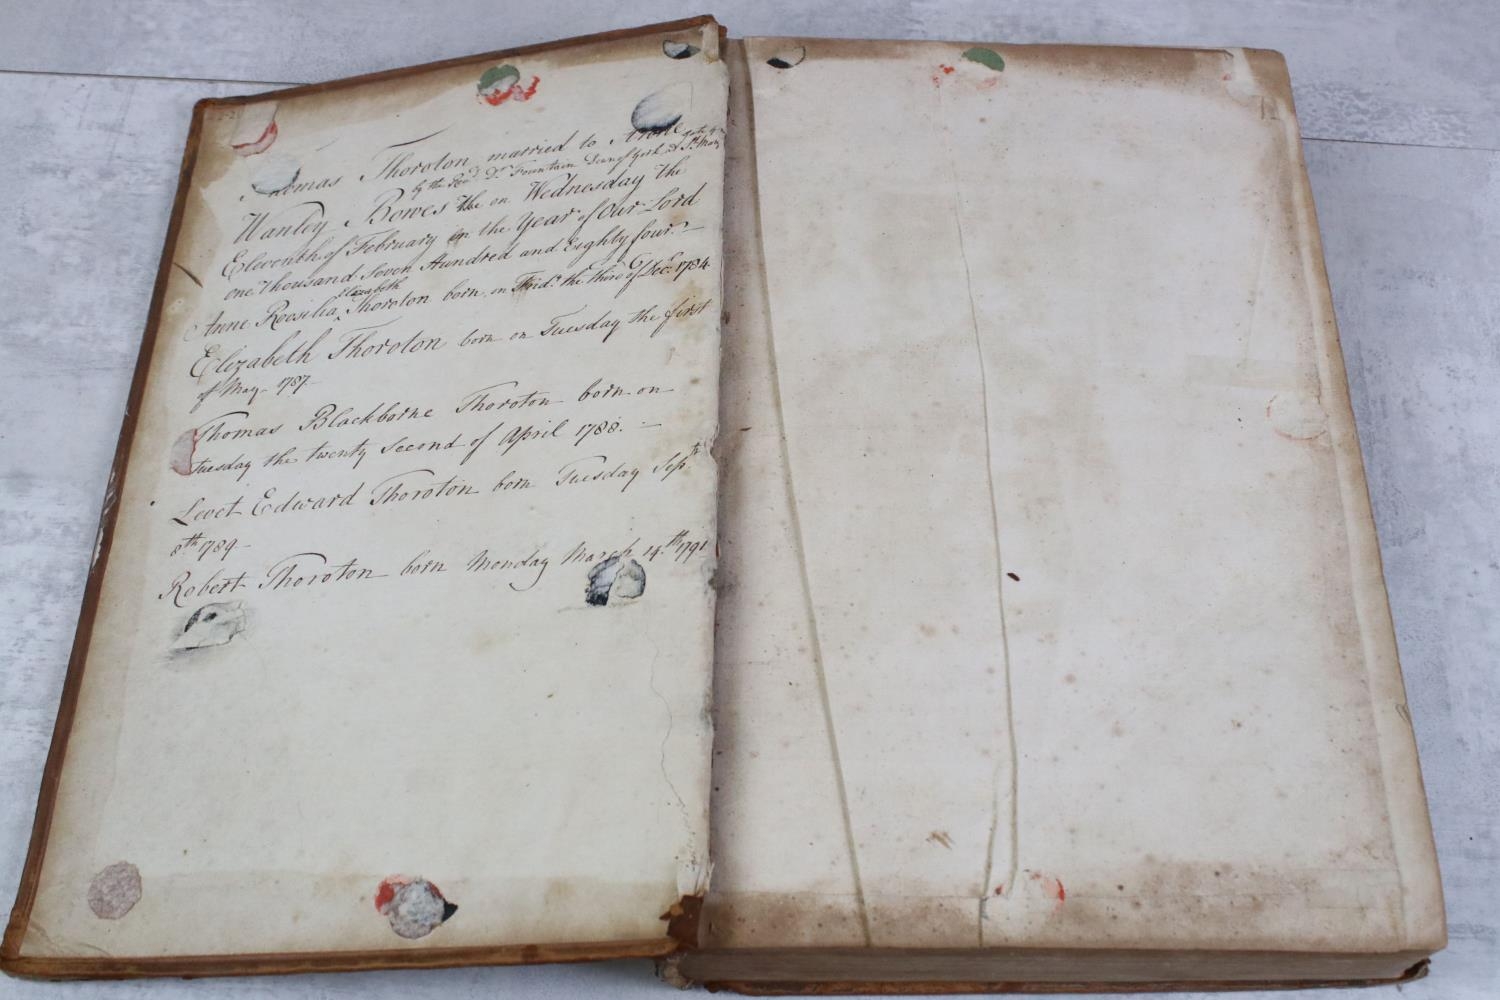 Thomas Thoroton married to Anne
by the Revd. Dr. Fountain Dean of York at St. Mary
Wanley Bowes the on Wednesday the
Eleventh of February in the Year of Our Lord
one Thousand Seven Hundred and Eighty four.—
Elizabeth
Anne Roosilia Thoroton born on Frid. the third of Decr. 1784
Elizabeth Thoroton born on Tuesday the first
of May- 1787-
Thomas Blackborne Thoroton born on
Tuesday the twenty Second of April 1788. —
Levet Edward Thoroton born Tuesday Septh
8th 1789-
Robert Thoroton born Monday March 14th 1791